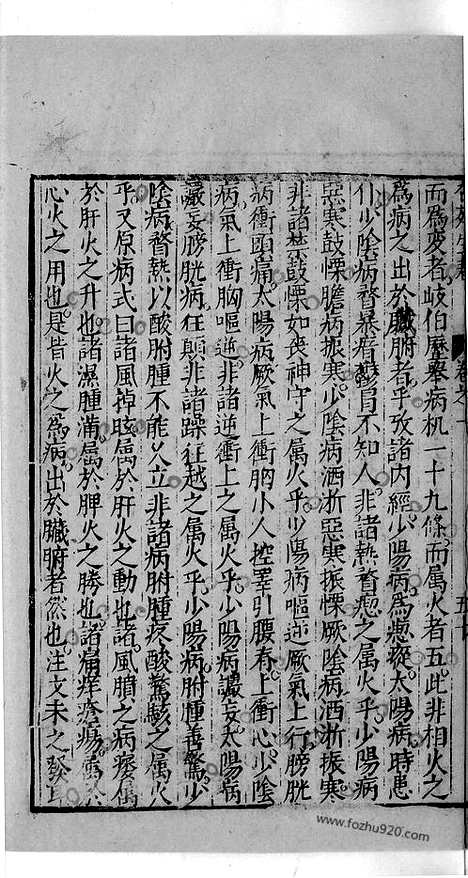 而為变者岐伯歷舉病机一十九條而属火者五此非相火之
為病之出於臟腑者乎攷諸內經少陽病為瘛瘲太陽病時患
仆少陰病瞀暴瘖鬱冒不知人非諸熱瞀瘛之属火乎少陽病
惡寒鼓慄膽病振寒少陰病洒淅惡寒振慄厥陰病洒淅振寒
非諸禁鼓慄如丧神守之属火乎少陽病嘔逆厥氣上行膀胱
病衝頭痛太陽病厥氣上衝胸小人控睾引腰脊上衝心少陰
病氣上衝胸嘔逆非諸逆衝上之属火乎少陽病譫妄太陽病
譫妄膀胱病狂顛非諸躁狂越之属火乎少陽病胕腫善驚少
陰病瞀熱以酸胕腫不能久立非諸病胕腫疼酸驚駭之属火
乎又原病式曰諸風掉眩属於肝火之動也諸風腊之病痿属
於肝火之升也諸濕腫滿属於脾火之勝也諸痛痒瘡瘍属於
心火之用也是皆火之為病出於臟腑者然也注文未之發
www.fozhu920.com